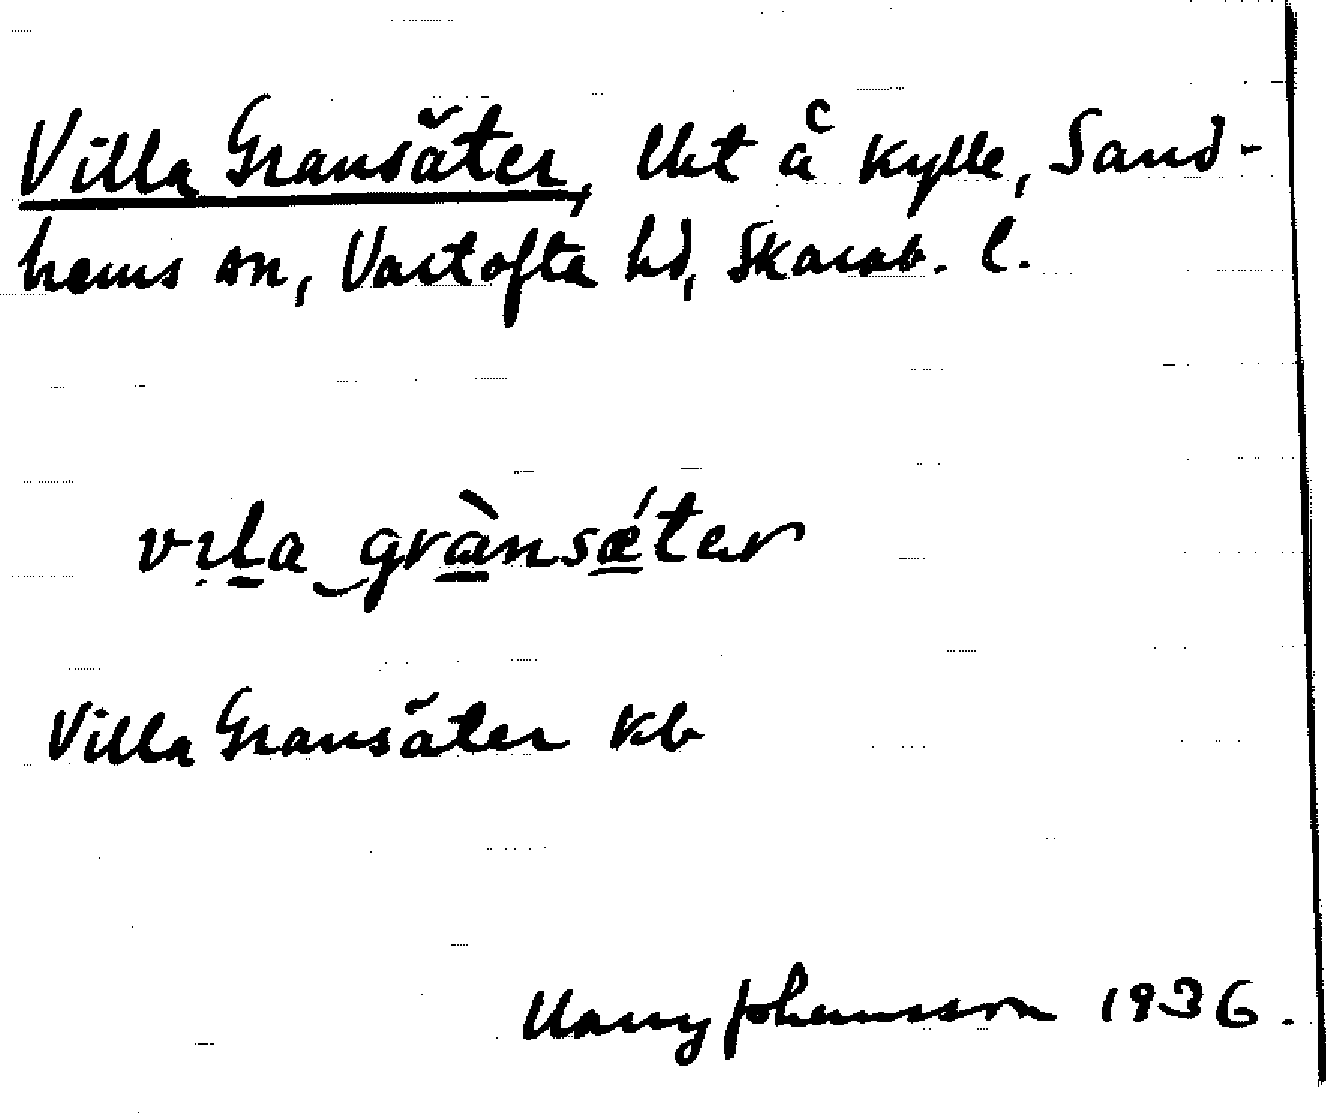 Villa Gransäter, lht å Kylle, Sand-
hems sn, Vartofta hd, Skarab. l.
vıla grànsǽter
Villa Gransäter kb
Harry Johansson 1936.